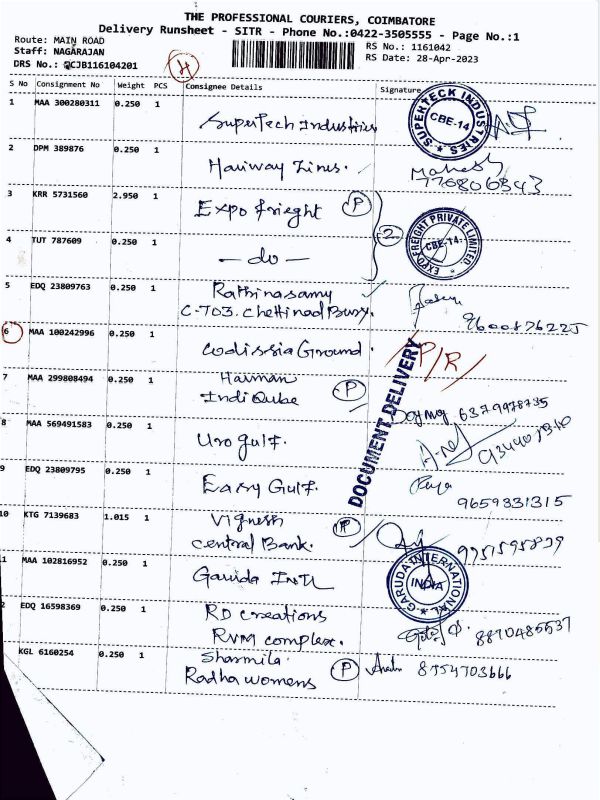 THE PROFESSIONAL COURIERS, COIMBATORE
Delivery Runsheet - SITR - Phone No.:0422-3505555 - Page No.:1
Route: MAIN ROAD
Staff: NAGARAJAN
RS No.: 1161042
DRS No.: QCJB116104201
RS Date: 28-Apr-2023
H
S No Consignment No Weight PCS Consignee Details Signature
1 MAA 300280311 0.250 1 SuperTech Industries
SUPERTECK INDUSTRIES
CBE-14
2 DPM 389876 0.250 1 Hariway Lines.
Mahesh
3 KRR 5731560 2.950 1 Expo frieght P
2
EXPO FREIGHT PRIVATE LIMITED
CBE-14
4 TUT 787609 0.250 1 - do -
5 EDQ 23809763 0.250 1 Rathinasamy
C-703. Chettinad
6 MAA 100242996 0.250 1 Codissia Ground. P/R
DOCUMENT DELIVERY
7 MAA 299808494 0.250 1 Haiman
IndiQube P
6379978735
8 MAA 569491583 0.250 1 Uro gulf.
9 EDQ 23809795 0.250 1 Easy Gulf.
Priya
9659331315
10 KTG 7139683 1.015 1 Vignesh P
Central Bank.
1 MAA 102816952 0.250 1 Garuda INTL
GARUDA INTERNATIONAL
INDIA
2 EDQ 16598369 0.250 1 RD creations
RVM complex.
8870485537
KGL 6160254 0.250 1 Sharmila.
Radha womens P
8754703666